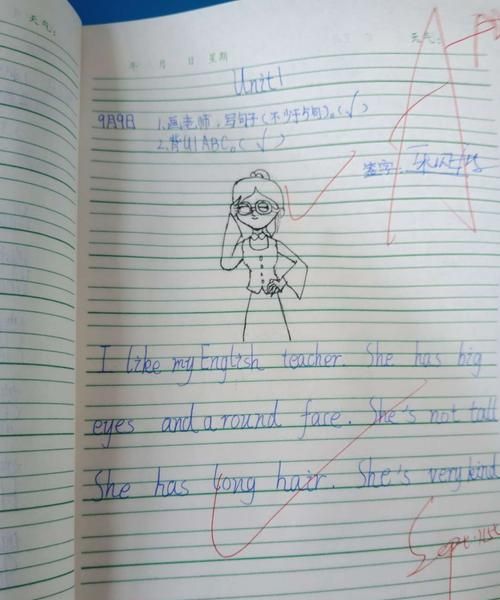 天气:
年 月 日 星期 天气:
Unit1
9月9日 1.画老师,写句子(不少于5句)。(√)
2.背U1ABC。(√)
签字:
I like my English teacher. She has big
eyes and a round face. She's not tall
She has long hair. She's very kind
A
Sept.11st